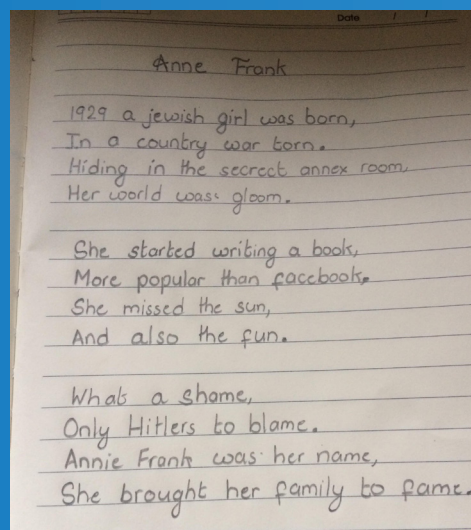 Date / /
Anne Frank
1929 a jewish girl was born,
In a country war torn.
Hiding in the secrect annex room,
Her world was gloom.
She started writing a book,
More popular than facebook.
She missed the sun,
And also the fun.
Whats a shame,
Only Hitlers to blame.
Annie Frank was her name,
She brought her family to fame.